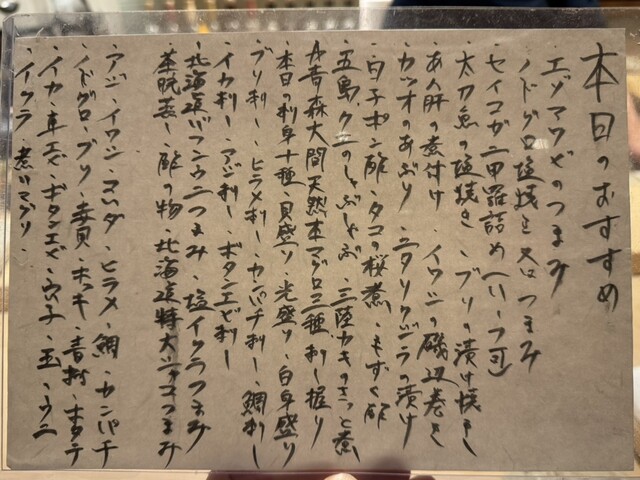 本日のおすすめ
・エゾアワビのつまみ
・ノドグロ塩焼き又はつまみ
・セイコガニ甲羅詰め(ハーフ可)
・太刀魚の塩焼き ・ブリの漬け焼き
・あん肝の煮付け ・イワシの磯辺巻き
・カツオのあぶり ・ニタリクジラの漬け
・白子ポン酢・タコの桜煮・もずく酢
・五島クエのしゃぶしゃぶ・三陸カキのさっと煮
・青森大間天然本マグロ三種刺し握り
・本日の刺身十種・貝盛り・光盛り・白身盛り
・ブリ刺し・ヒラメ刺し・カンパチ刺し・鯛刺し
・イカ刺し・アジ刺し・ボタンエビ刺し
・北海道バフンウニつまみ・塩イクラつまみ
茶碗蒸し・酢の物・北海道特大シャコつまみ
・アジ・イワシ・マダイ・ヒラメ・鯛・カンパチ
・ノドグロ・ブリ・赤貝・ホッキ・青柳・ホタテ
・イカ・車エビ・ボタンエビ・穴子・玉・ウニ
・イクラ・煮ハマグリ・